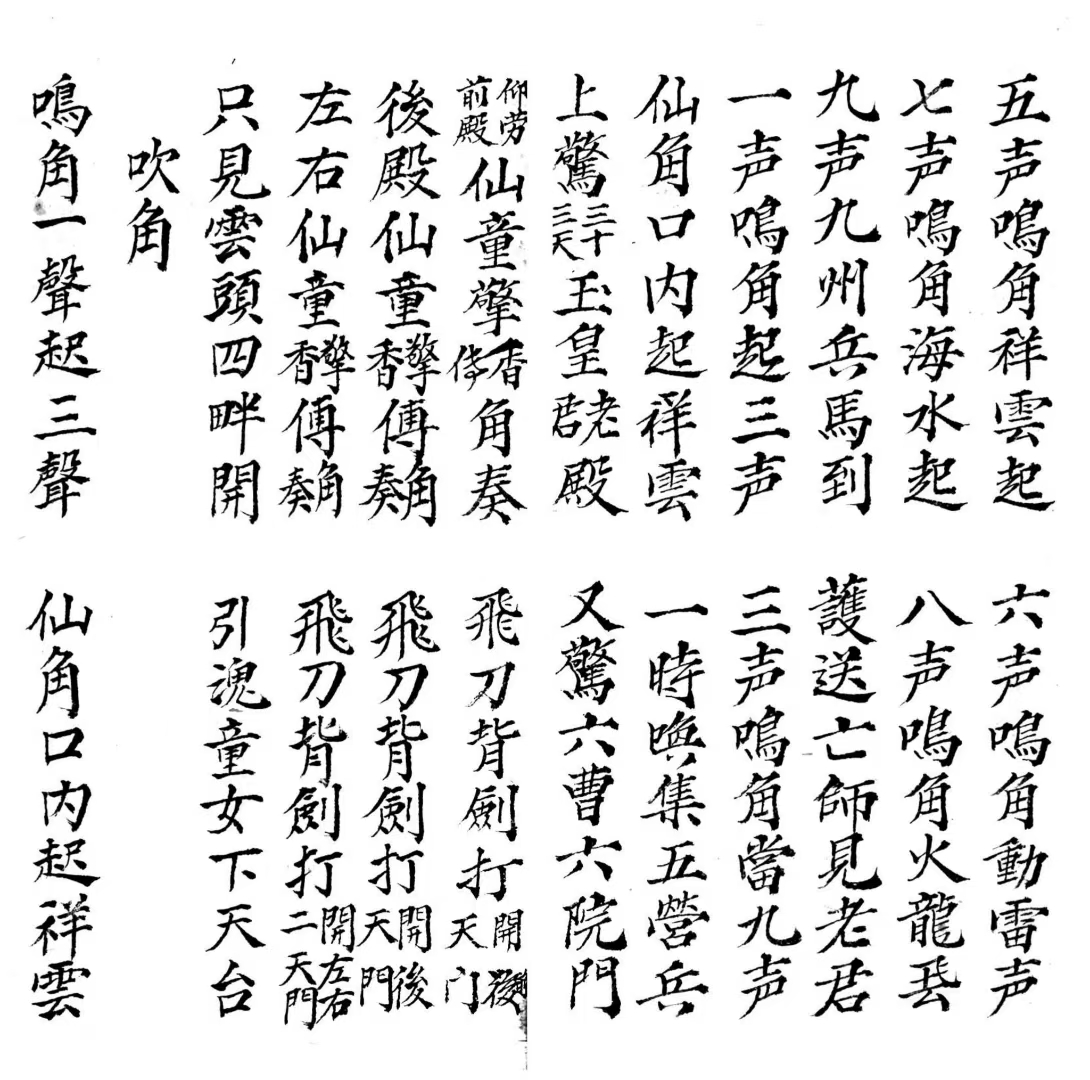 五声鳴角祥雲起 六声鳴角動雷声
七声鳴角海水起 八声鳴角火龍飛
九声九州兵馬到 護送亡師見老君
一声鳴角起三声 三声鳴角當九声
仙角口内起祥雲 一時喚集五營兵
上驚三十三天玉皇老君殿 又驚六曹六院門
仰劳前殿仙童擎香侍角奏 飛刀背劍打開天门
後殿仙童擎香傅角奏 飛刀背劍打開後天門
左右仙童擎香傅角奏 飛刀背劍打開左右二天門
只見雲頭四畔開 引魂童女下天台
吹角
鳴角一聲起三聲 仙角口内起祥雲